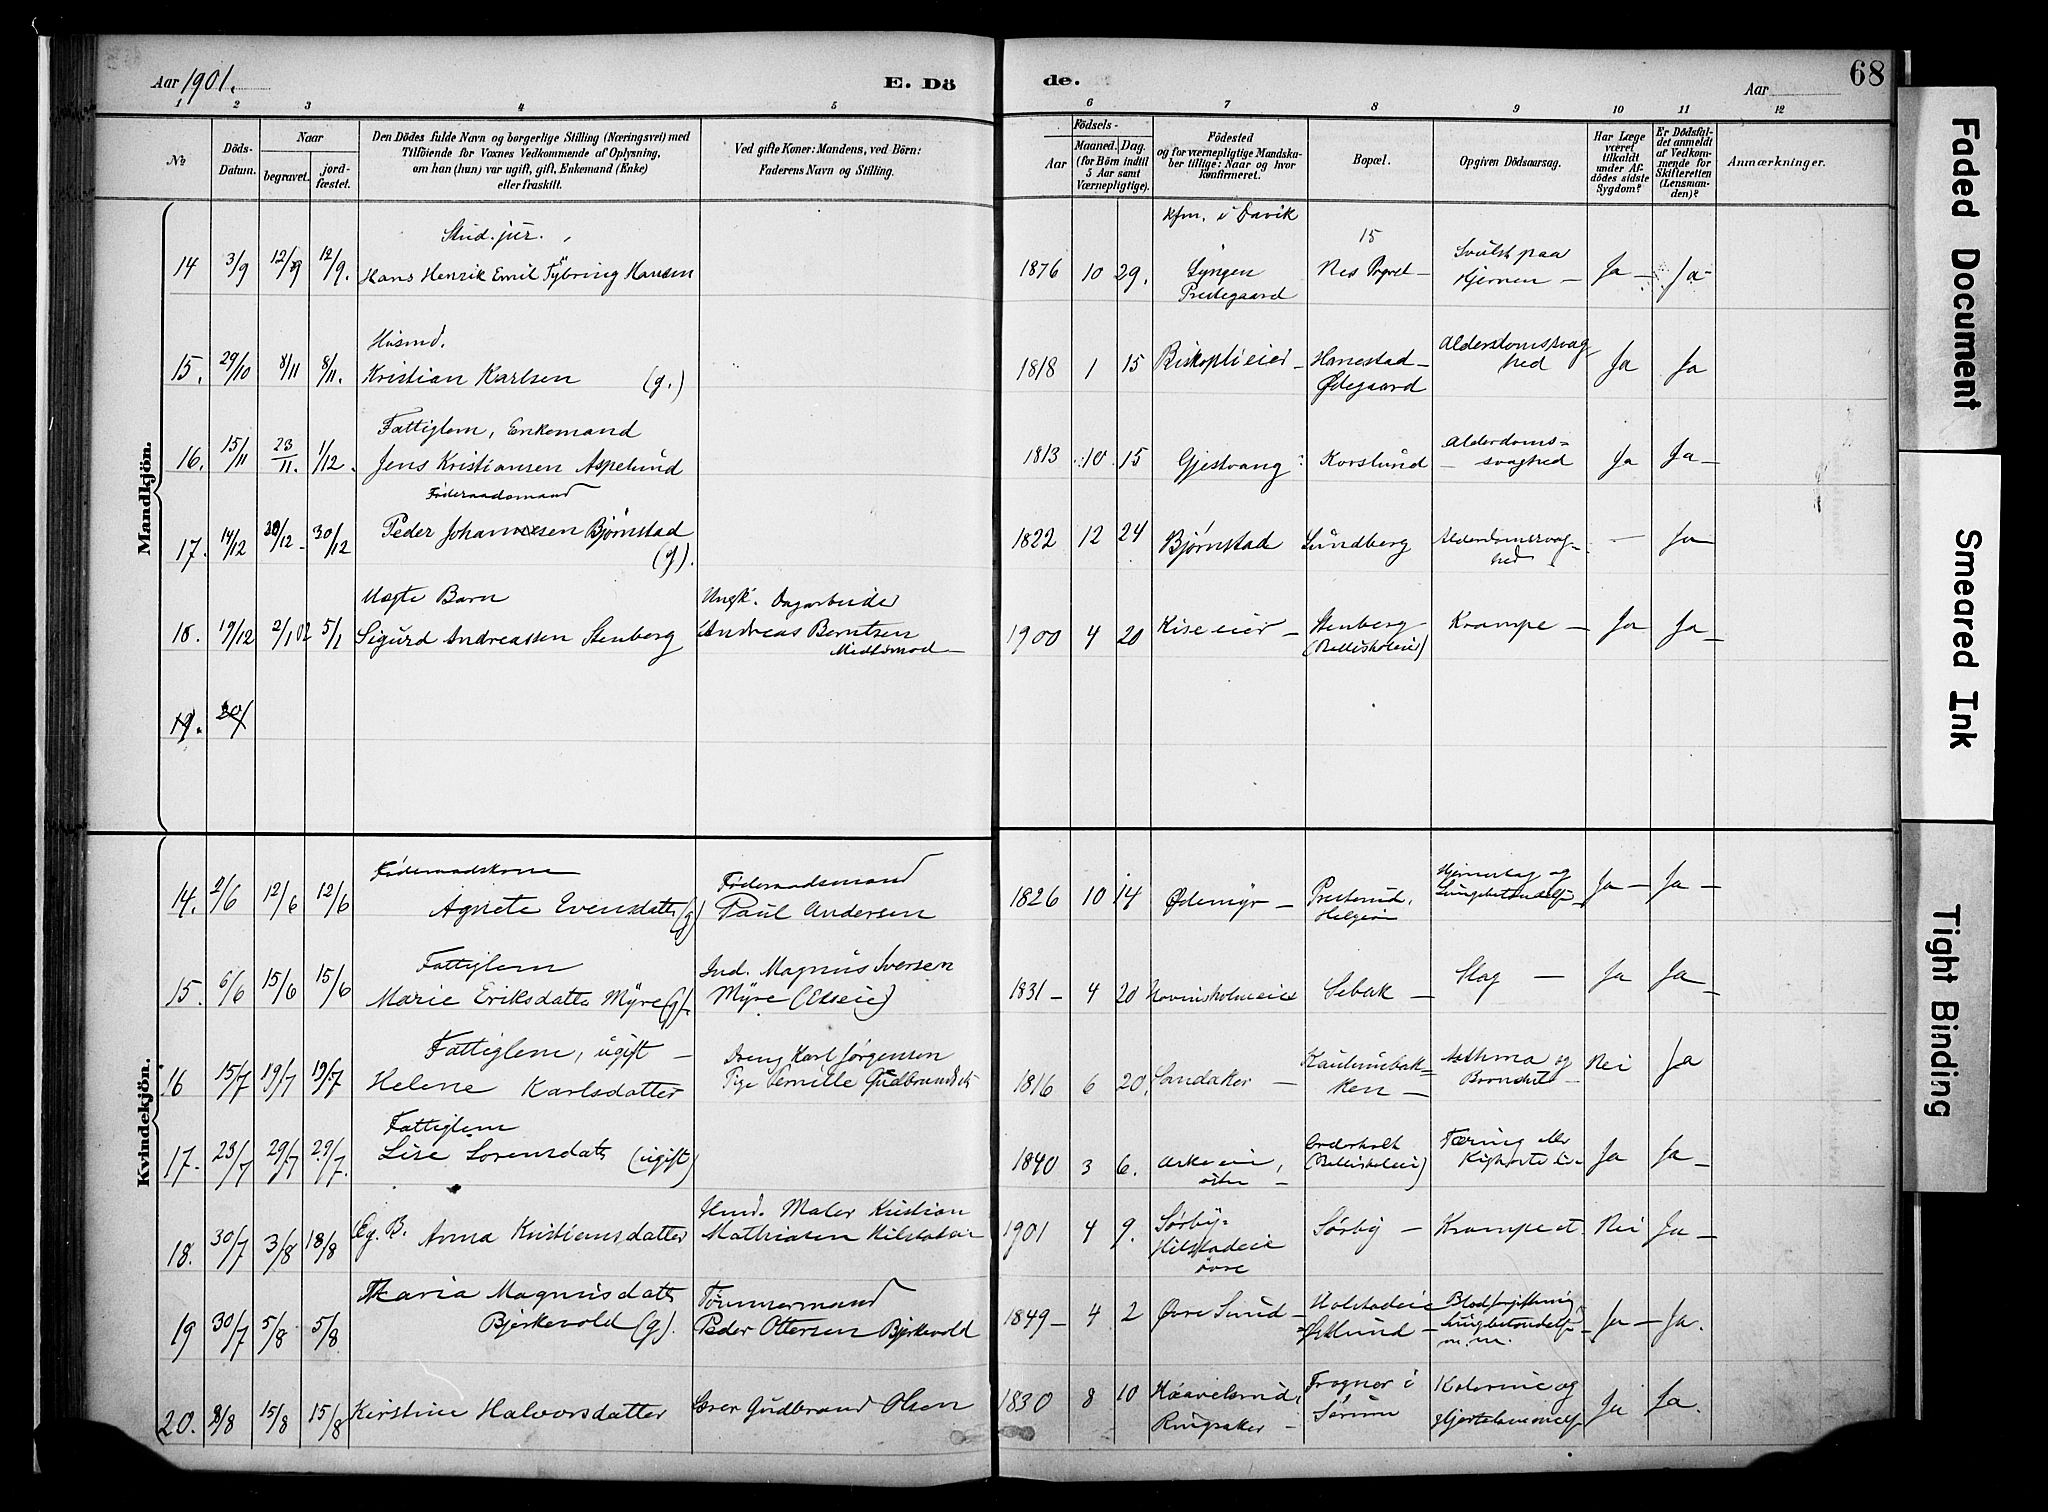 Aar 1901.
E. Dö
de.
Aar
68
1 2 3 4 5 6 7 8 9 10 11 12
No
Döds-Datum.
Naar
begravet.
jord-fæstet.
Den Dödes fulde Navn og borgerlige Stilling (Næringsvei) med
Tilföiende for Voxnes Vedkommende af Oplysning,
om han (hun) var ugift, gift, Enkemand (Enke)
eller fraskilt.
Ved gifte Koner: Mandens, ved Börn:
Faderens Navn og Stilling.
Födsels-
Aar
Maaned. Dag.
(for Börn indtil
5 Aar samt
Værnepligtige).
Födested
og for værnepligtige Mandska-
ber tillige: Naar og hvor
konfirmeret.
Bopæl.
Opgiven Dödsaarsag.
Har Læge
været
tilkaldt
under Af-
dödes sidste
Sygdom?
Er Dödsfal-
det anmeldt
af Vedkom-
mende for
Skifteretten
(Lensman-
den)?
Anmærkninger.
Mandkjön.
Stud. jur.
Kfm. i Davik
14 3/9 12/9 12/9. Hans Henrik Emil Tybring Hansen 1876 10 29. Lyngen Prestegaard 15 Nes Prgrd - Svulst paa Hjernen - Ja - Ja -
Husmd.
15. 29/10 8/11 8/11. Kristian Karlsen (g.) 1818 1 15 Biskoplieier - Hanestad- Ødegaard Alderdomssvaghed Ja Ja
Fattiglem, Enkemand
16. 15/11 23/11. 1/12. Jens Kristiansen Aspelund 1813 10 15 Gjestvang Korslund Alderdoms=svaghed Ja Ja -
Føderaadsmand
17. 14/12 30/12 - 30/12 Peder Johannesen Bjørnstad (g). 1822 12 24 Bjørnstad Sundberg Alderdomssvag-hed - Ja
Uægte Barn Ungk. Dagarbeider
18. 19/12 2/1 02 5/1 Sigurd Andreassen Stenberg Andreas Berntsen 1900 4 20 Kise eier - Stenberg Krampe - Ja Ja -
19. 20/
Kvindekjön.
Føderaadskone Føderaadsmand
14. 2/6 12/6 12/6 Agnete Evensdatt (g) Paul Andersen 1826 10 14 Ødemyr - Presterud, Hjerneslag og Lungebetændelse Ja - Ja -
Fattiglem Ind. Magnus Iversen
15. 6/6 15/6 15/6 Marie Eriksdatte Myre (g). Myre 1831 - 4 20 Hovinsholmeiet Sebak - Slag - Ja Ja -
Fattiglem, ugift - Dreng Karl Jørgensen
16 15/7 19/7 19/7 Helene Karlsdatter Pige Pernille Gudbrandsdt 1816 6 20. Sandaker - Asthma og Bronchit - Nei Ja
Fattiglem
17. 23/7 29/7 29/7. Lise Lorensdatt (ugift) 1840 3 6. Tæring Ja Ja -
18. 30/7 3/8 18/8 Eg. B. Anna Kristiansdatter Hmd. Maler Kristian Mathiasen 1901 4 9. Sørby- Sørby - Krampe Nei Ja -
19 30/7 5/8 5/8. Maria Magnusdatt Bjerkevold (g). Tømmermand Peder Ottersen Bjerkevold 1849 - 4 2 Øvre Sund - Blodforgiftning Lungebetændelse m.m. Ja - Ja.
20. 9/8 15/8 15/8 Kirstine Halvorsdatter Gudbrand Olsen 1830 8 10 Haavelsrud, Ringsaker - Frogner i Sørum Ja Ja.
Faded Document
Smeared Ink
Tight Binding